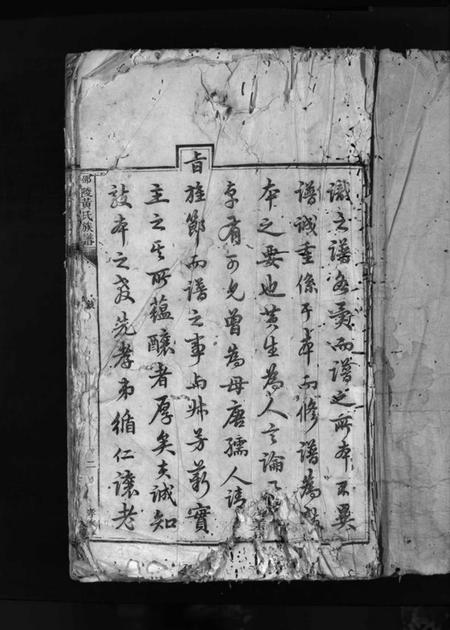 識之譜每異而譜之所本不異
譜誠重係于本而修譜為
本之要也其生為人言論
卓有可見曾為母唐孺人請
旨旌節而譜之事與叔芳蘄實
主之其所蘊釀者厚矣夫誠知
敦本之教先孝弟循仁讓老
邵陵黃氏族譜
二